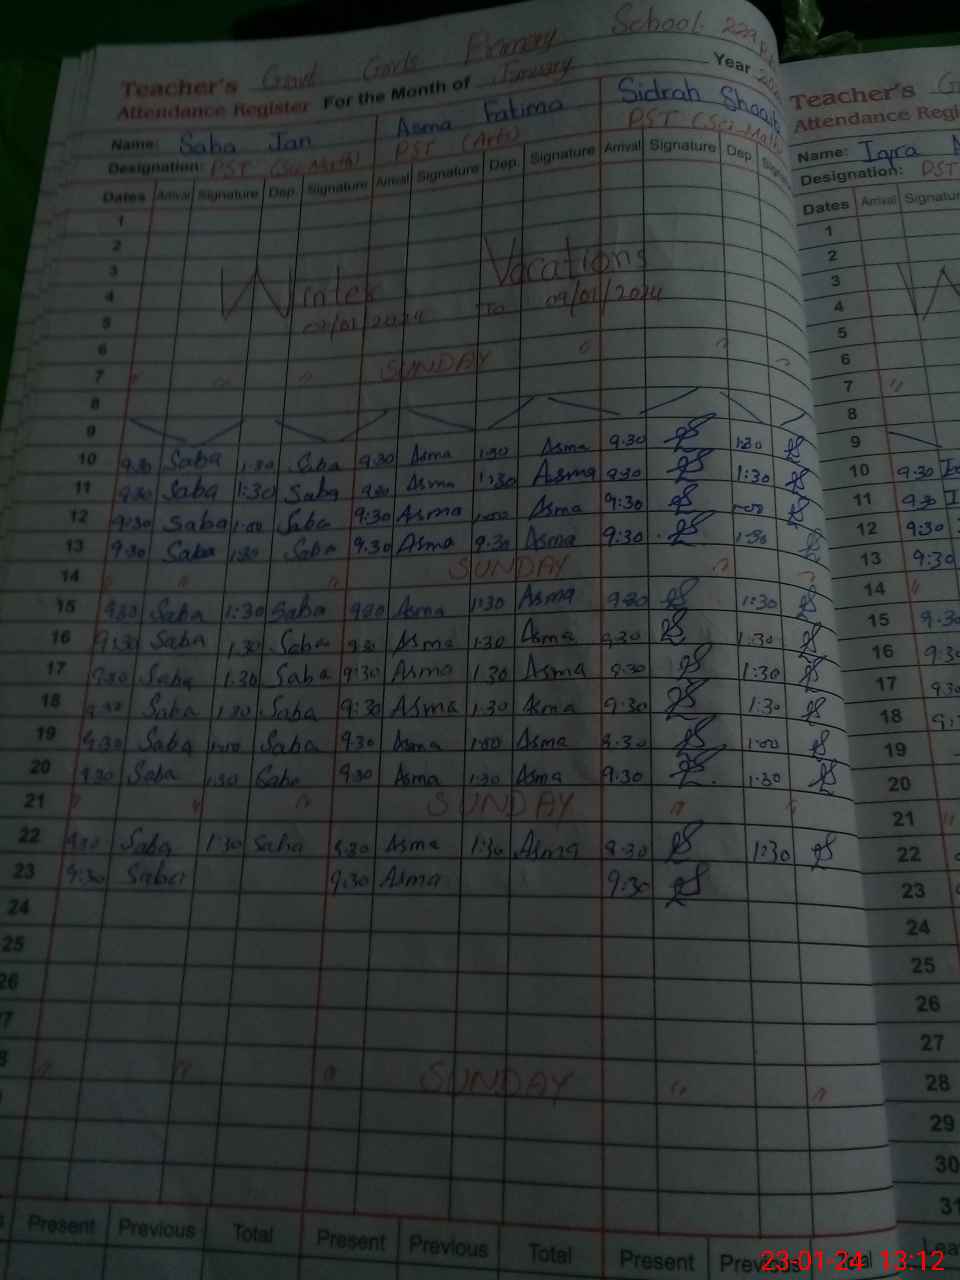 Teacher's Govt Girls Primary School 229
Attendance Register For the Month of January Year
Name: Saba Jan Asma Fatima Sidrah Shoaib
Designation: PST (Sci-Math) PST (Arts) PST (Sci-Math)
Dates Arrival Signature Dep. Signature Arrival Signature Dep. Signature Arrival Signature Dep.
1
2
3 Winter Vacations
4
5 To 09/01/2024
6
7 " " " SUNDAY "
8
9
10 9:30 Saba 1:30 Saba 9:30 Asma 1:30 Asma 9:30 1:30
11 9:30 Saba 1:30 Saba 9:30 Asma 1:30 Asma 9:30 1:30
12 9:30 Saba 1:00 Saba 9:30 Asma 1:00 Asma 9:30 1:00
13 9:30 Saba 1:30 Saba 9:30 Asma 9:30 Asma 9:30 1:30
14 " " " SUNDAY
15 9:30 Saba 1:30 Saba 9:30 Asma 1:30 Asma 9:30 1:30
16 9:30 Saba 1:30 Saba 9:30 Asma 1:30 Asma 9:30 1:30
17 9:30 Saba 1:30 Saba 9:30 Asma 1:30 Asma 9:30 1:30
18 9:30 Saba 1:30 Saba 9:30 Asma 1:30 Asma 9:30 1:30
19 9:30 Saba 1:00 Saba 9:30 Asma 1:00 Asma 9:30 1:00
20 9:30 Saba 1:30 Saba 9:30 Asma 1:30 Asma 9:30 1:30
21 " " " SUNDAY " "
22 9:30 Saba 1:30 Saba 9:30 Asma 1:30 Asma 9:30 1:30
23 9:30 Saba 9:30 Asma 9:30
24
25
26
7
8 " " " SUNDAY " "
Present Previous Total Present Previous Total Present Previous Total
Teacher's
Attendance Regi
Name: Iqra
Designation: PST
Dates Arrival Signature
1
2
3
4
5
6
7 "
8
9
10 9:30
11 9:30
12 9:30
13 9:30
14 "
15 9:30
16 9:30
17 9:30
18
19
20
21 "
22
23
24
25
26
27
28
29
30
31
23-01-24 13:12